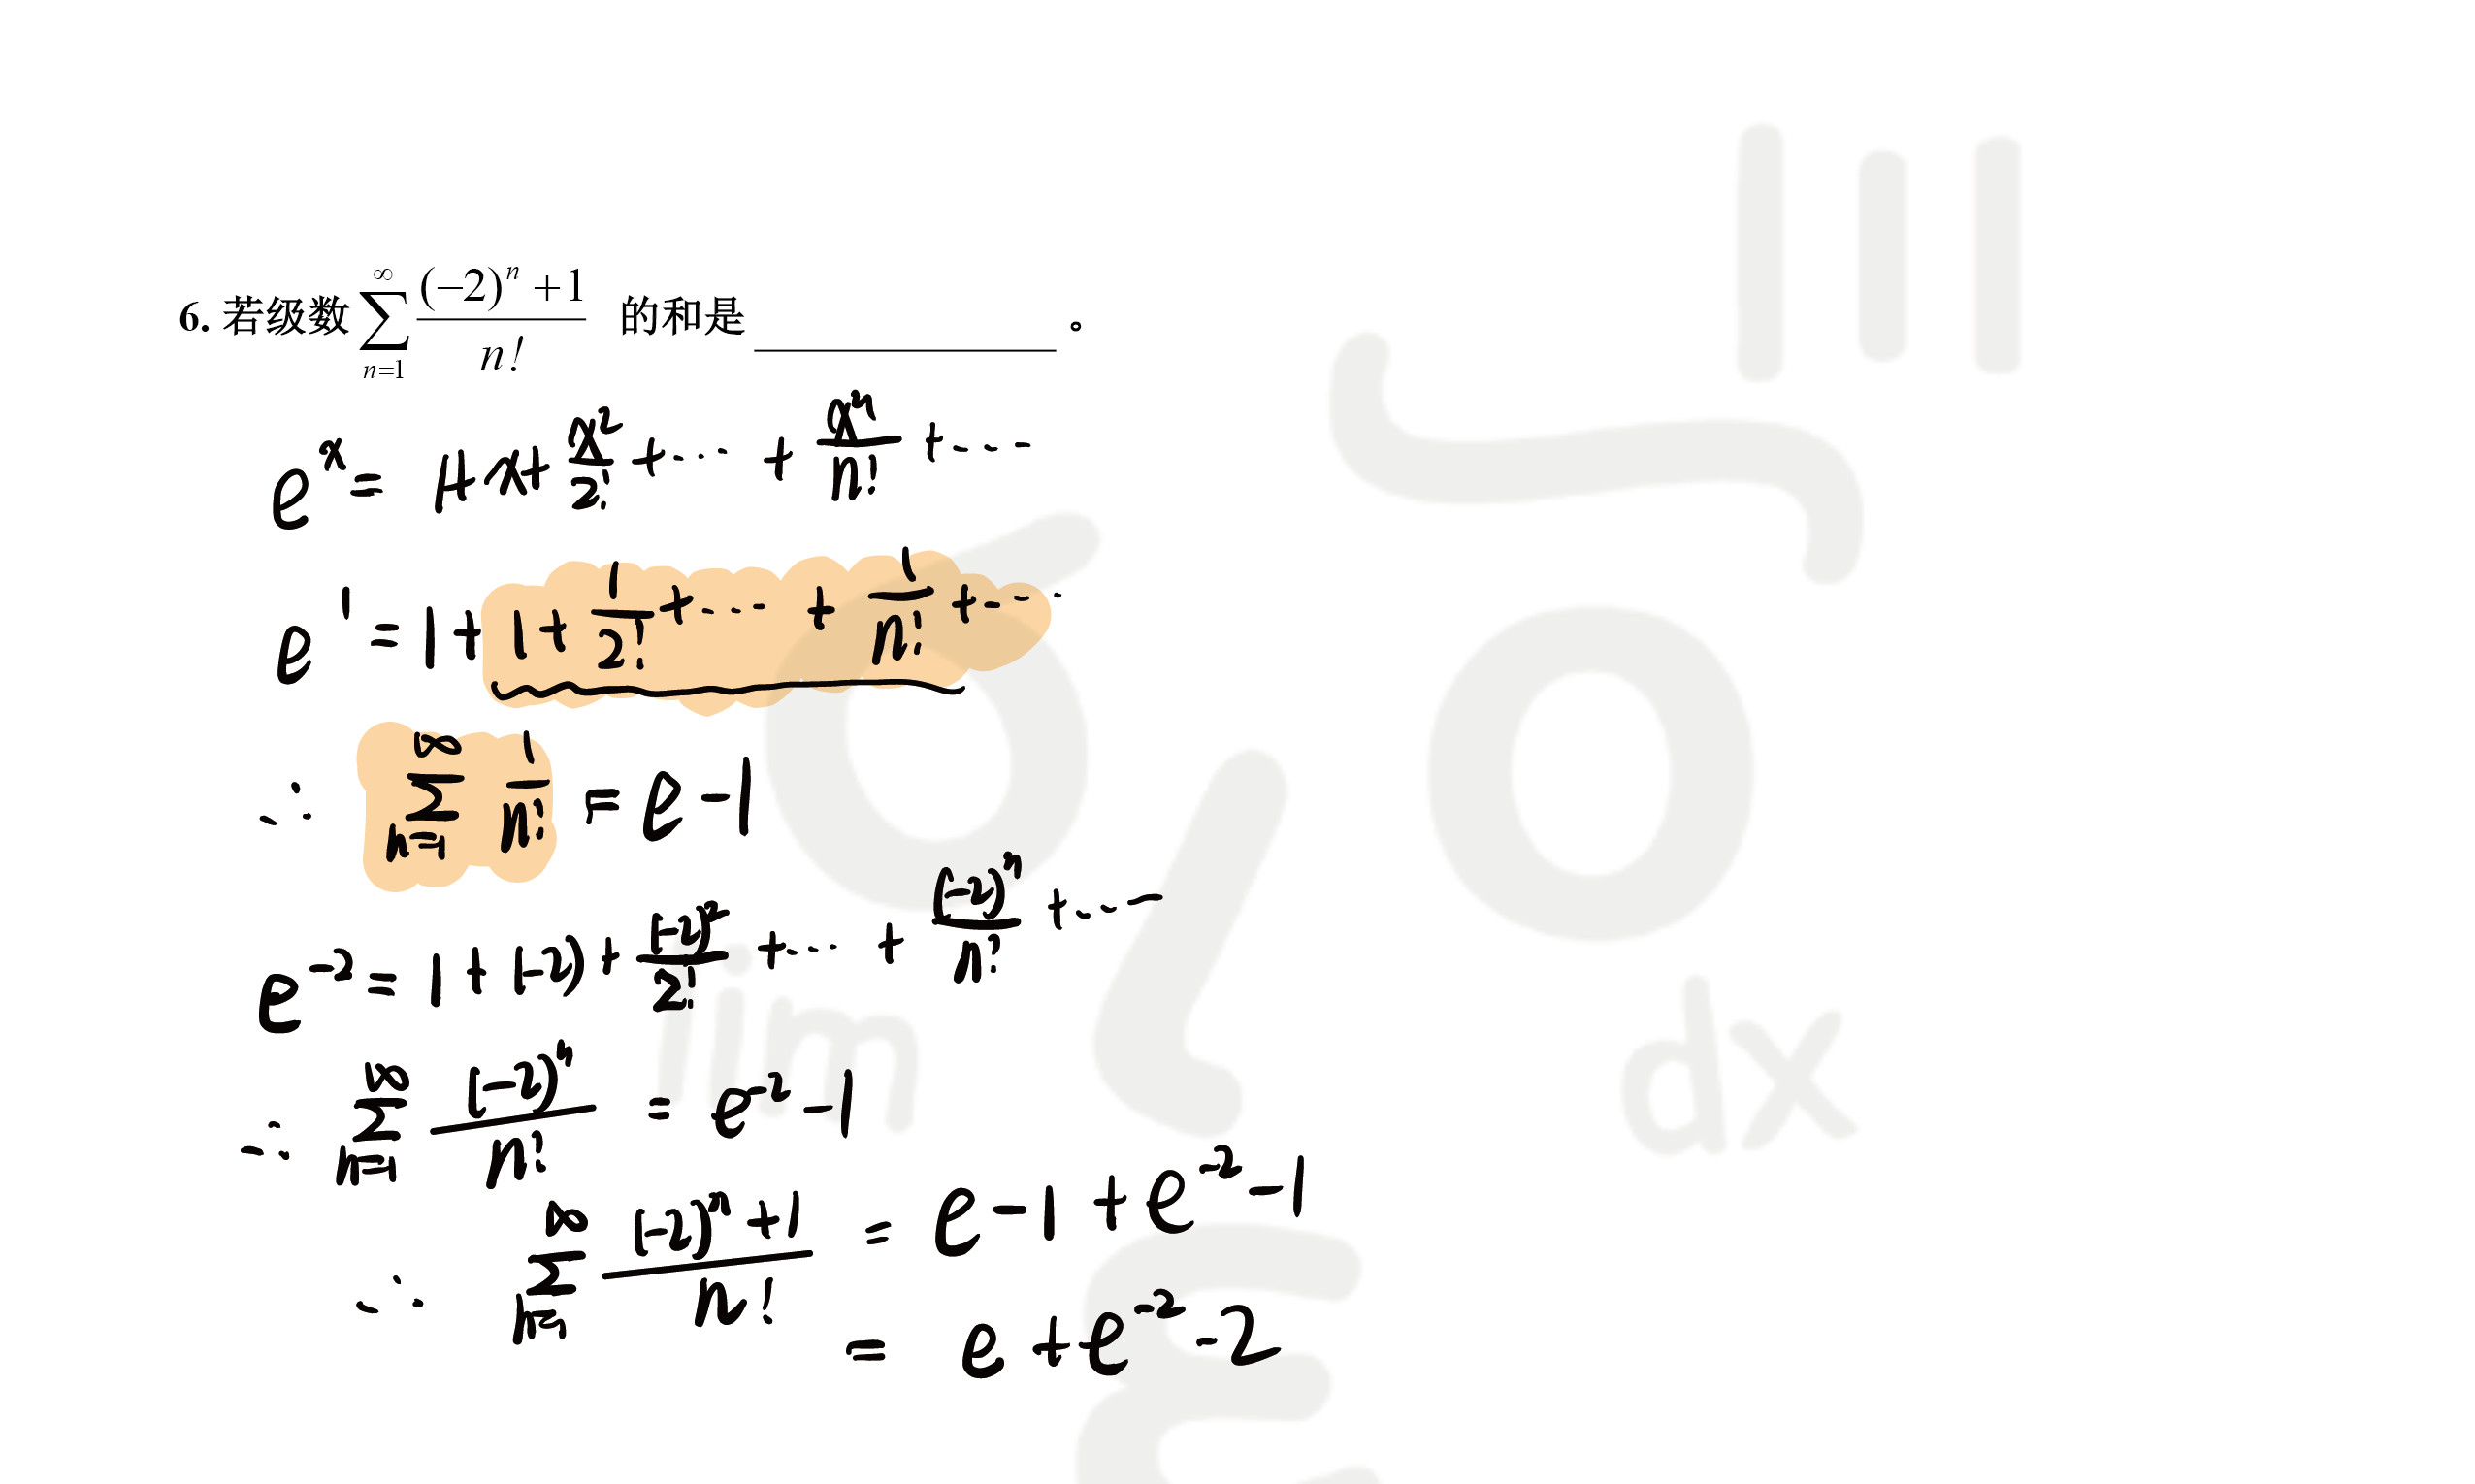 6. 若级数 $\sum_{n=1}^{\infty} \frac{(-2)^n+1}{n!}$ 的和是 ______ 。
$e^x = 1+x+\frac{x^2}{2!}+\cdots+\frac{x^n}{n!}+\cdots$
$e^1 = 1+1+\frac{1}{2!}+\cdots+\frac{1}{n!}+\cdots$
$\therefore \sum_{n=1}^{\infty} \frac{1}{n!} = e-1$
$e^{-2} = 1+(-2)+\frac{(-2)^2}{2!}+\cdots+\frac{(-2)^n}{n!}+\cdots$
$\therefore \sum_{n=1}^{\infty} \frac{(-2)^n}{n!} = e^{-2}-1$
$\therefore \sum_{n=1}^{\infty} \frac{(-2)^n+1}{n!} = e-1+e^{-2}-1$
$= e+e^{-2}-2$
lim
dx